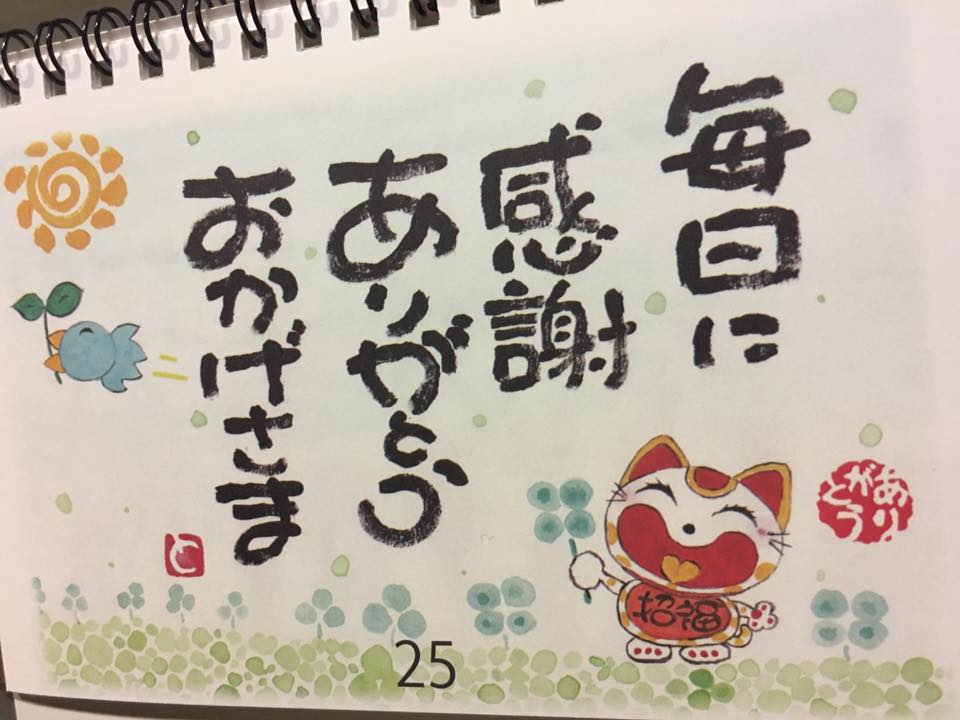 毎日に
感謝
ありがとう
おかげさま
と
ありがとう
招福
25